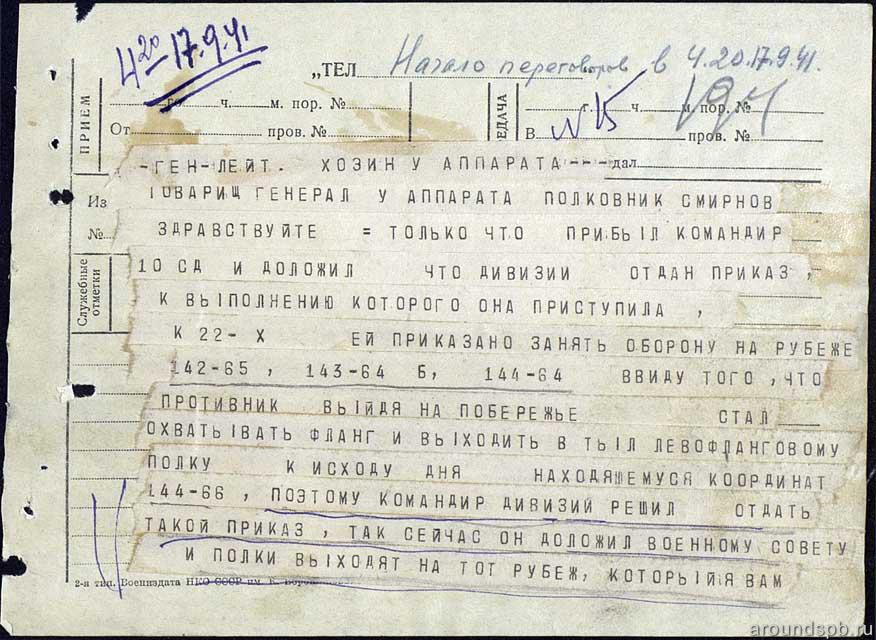 4 20 17.9.41
„ТЕЛ Начало переговоров в 4.20.17.9.41.
ПРИЕМ
го ч. м. пор. №
От пров. №
ЕДАЧА
г. ч. м. пор. №
В пров. №
N 15
-ГЕН-ЛЕЙТ. ХОЗИН У АППАРАТА--- дал
Из ТОВАРИЩ ГЕНЕРАЛ У АППАРАТА ПОЛКОВНИК СМИРНОВ
№ ЗДРАВСТВУЙТЕ = ТОЛЬКО ЧТО ПРИБЫЛ КОМАНДИР
Служебные отметки
10 СД И ДОЛОЖИЛ ЧТО ДИВИЗИИ ОТДАН ПРИКАЗ ,
К ВЫПОЛНЕНИЮ КОТОРОГО ОНА ПРИСТУПИЛА ,
К 22-Х ЕЙ ПРИКАЗАНО ЗАНЯТЬ ОБОРОНУ НА РУБЕЖЕ
142-65 , 143-64 Б, 144-64 ВВИДУ ТОГО ,ЧТО
ПРОТИВНИК ВЫЙДЯ НА ПОБЕРЕЖЬЕ СТАЛ
ОХВАТЫВАТЬ ФЛАНГ И ВЫХОДИТЬ В ТЫЛ ЛЕВОФЛАНГОВОМУ
ПОЛКУ К ИСХОДУ ДНЯ НАХОДЯШЕМУСЯ КООРДИНАТ
144-66 , ПОЭТОМУ КОМАНДИР ДИВИЗИЙ РЕШИЛ ОТДАТЬ
ТАКОЙ ПРИКАЗ , ТАК СЕЙЧАС ОН ДОЛОЖИЛ ВОЕННОМУ СОВЕТУ
И ПОЛКИ ВЫХОДЯТ НА ТОТ РУБЕЖ, КОТОРЫЙ Я ВАМ
2-я тип. Воениздата НКО СССР им. К.
aroundspb.ru